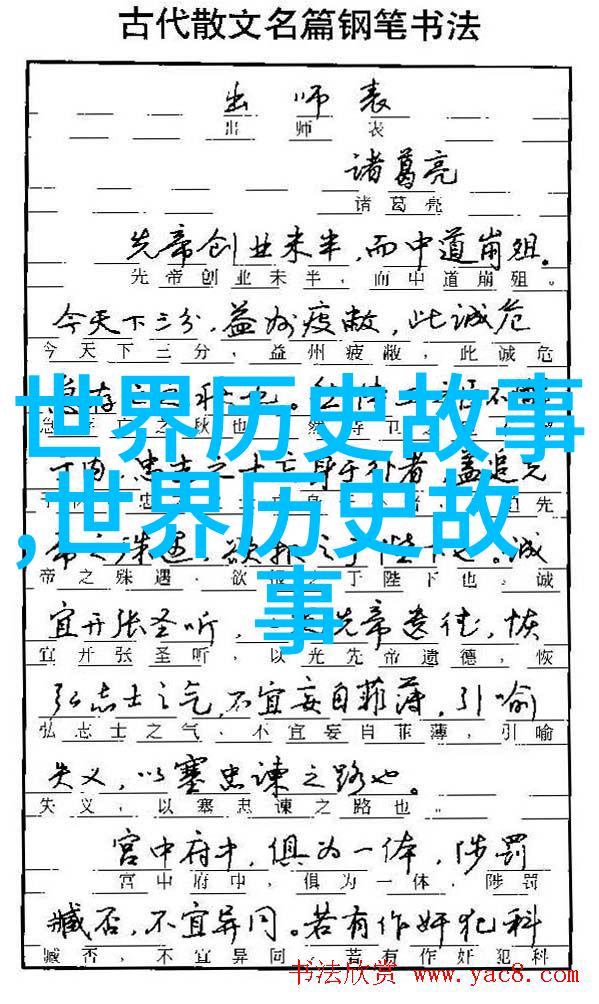 古代散文名篇钢笔书法
出师表
出师表
诸葛亮
诸葛亮
先帝创业未半，而中道崩殂。
先帝创业未半，而中道崩殂。
今天下三分，益州疲敝，此诚危
今天下三分，益州疲敝，此诚危
世界历史故事
存 秋也。 不
之秋也
内，忠志之士亡身于外者，盖追先
先
,世界历史故
帝之殊遇，欲报之于陛下也。诚
帝之殊遇，欲 之于陛下也，诚
事
宜开张圣听， 先帝遗德，恢
宜开张圣听，以光先帝遗德，恢
弘志士之气，不宜妄自菲薄，引喻
弘志士之气，不宜妄自菲薄，引喻
失义，以塞忠谏之路也。
失义，以塞忠谏之路也。
宫中府中，俱为一体，陟罚
宫中府中，俱为一体，陟罚
臧否，不宜异同。若有作奸犯科
臧否，不宜异同。若有作奸犯科
书法欣赏 www.yac8.com